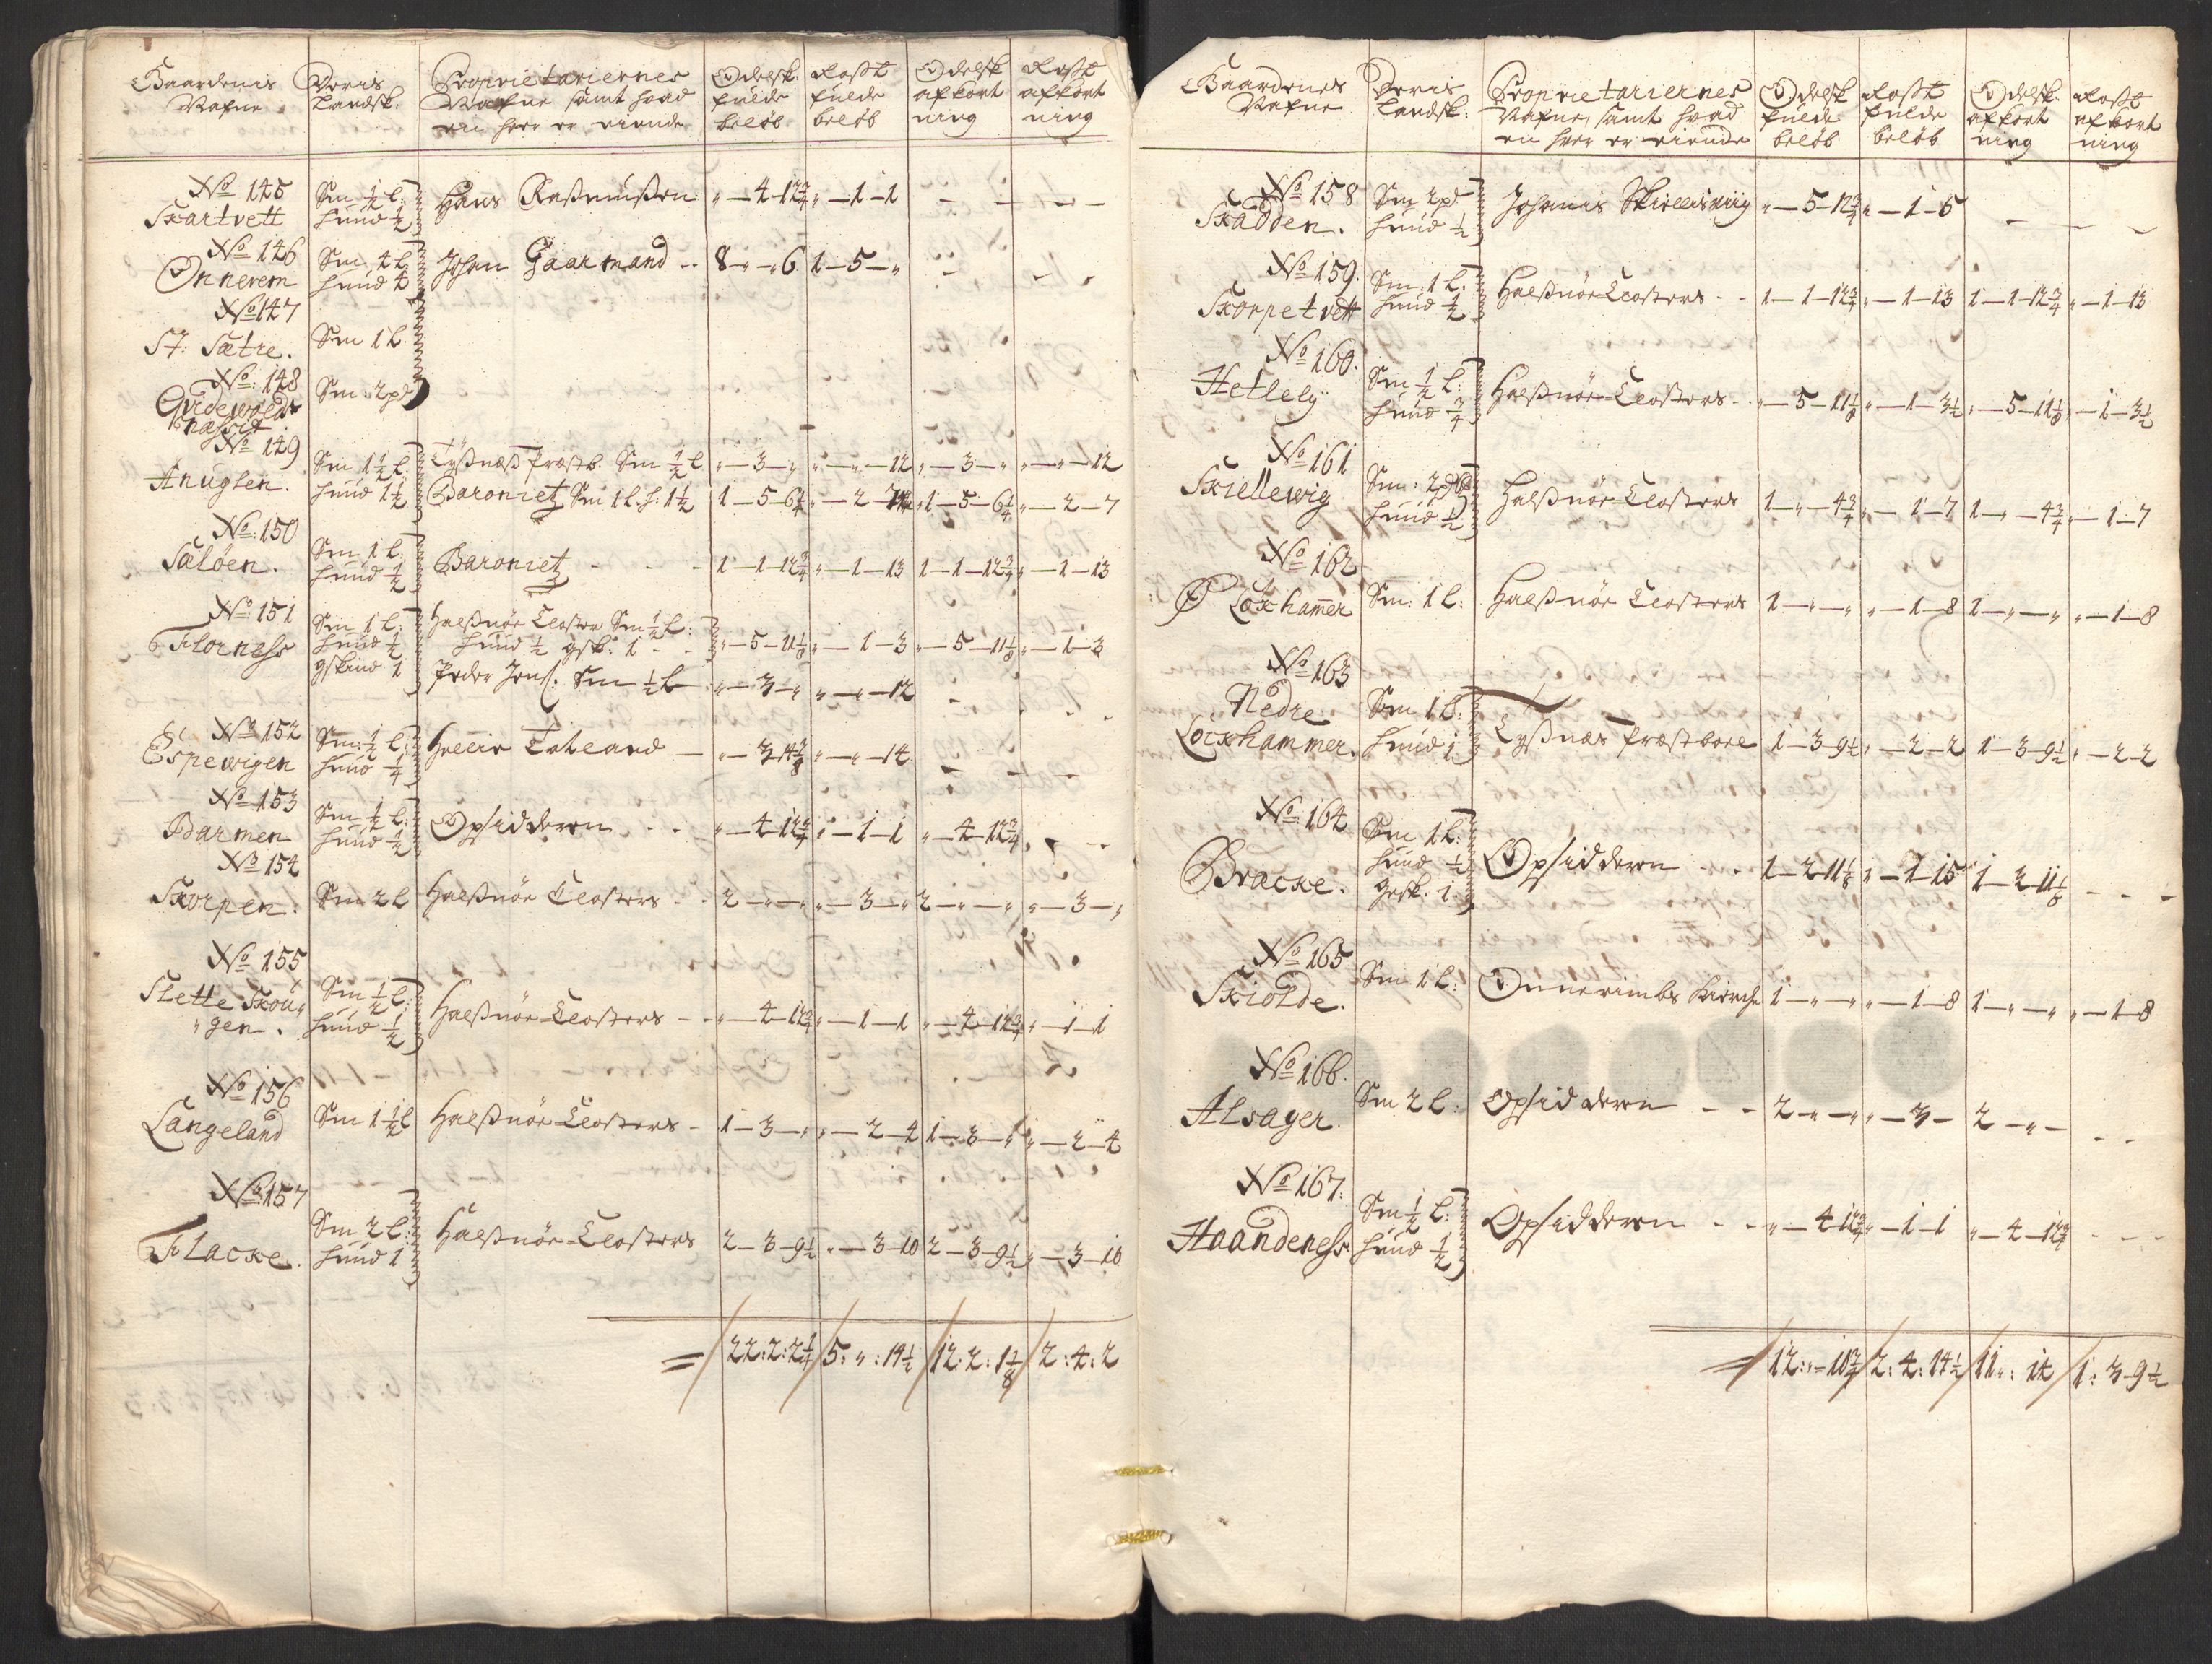 Gaardenis Nafne
Deris Landsk:
Proprietariernes Nafne samt hvad en hver er eiende
Odelsk fulde beløb
Rostt fulde beløb
Odelsk afkort ning
Rostt afkort ning
No 145 Skartvett Sm ½ l: huud ½ Hans Rasmussen „—4—12¾ „—1—1 — — — —
No 146 Onnerem Sm 4 l huud 4 Johan Gaarmand -- 8—„—6 1—5—„ — — —
No 147 St: Sætre. Sm 1 l.
No: 148 Sm: 2pd
No 149 Anuglen. Sm 1½ l. huud 1½ Tyssnæss Præstb. Sm ½ l „—3—„ „—„—12 „—3—„ „—„—12
Baroniet Sm 1 l. h: 1½ 1—5—6¼ „—2—7 1—5—6¼ „—2—7
No: 150 Sæløen. Sm 1 l: huud ½ Baroniet - - - 1—1—12¾ „—1—13 1—1—12¾ „—1—13
No 151 Flornæss Sm 1 l: huud ½ gskind 1 Halssnöe Closter Sm ½ l:
huud ½ gsk: 1 - - „—5—11⅛ „—1—3 „—5—11⅛ „—1—3
Peder Jens: Sm ½ l „—3—„ „—„—12 - - - -
No 152 Espewigen Sm: ½ l: huud ¼ „—„—14 — — —
No 153 Barmen Sm ½ l: huud ½ Opsidderen - - „—4—12¾ „—1—1 „—4—12¾ - -
No 154 Skorpen: Sm 2 l Halssnöe Closters - - 2—„—„ „—3—„ 2—„—„ „—3—„
No 155 Slette Skou„
„gen. Sm ½ l: huud ½ Halssnöe Closters - - „—4—12¾ „—1—1 „—4—12¾ „—1—1
No 156 Langeland Sm 1½ l Halssnöe Closters - 1—3—„ „—2—4 1—3—„ „—2—4
No: 157 Flacke. Sm 2 l: huud 1 Halssnöe Closters 2—3—9½ „—3—10 2—3—9½ „—3—10
=/22:2:2¼/5:„:14½/12:2:1⅛/2:4:2
Gaardenes Nafne
Deris Landsk:
Proprietariernes Nafne, samt hvad en hver er eiende
Odelsk fulde beløb
Rostt fulde beløb
Odelsk afkort ning
Rostt afkort ning
No 158 Skadden. Sm 2pd huud ½ Johanis „—5—12¾ „—1—5 — — —
No 159. Skorpetvett Sm: 1 l: huud ½ Halssnöe Closters - - 1—1—12¾ „—1—13 1—1—12¾ „—1—13
No 160. Hetlely Sm ½ l: huud ¾ Halssnöe Closters - - „—5—11⅛ „—1—3½ „—5—11⅛ „—1—3½
No 161 Skiellewig Sm: 2pd huud ½ Halssnöe Closters 1—„—4¾ „—1—7 1—„—4¾ „—1—7
No 162 Ø Loxhamer Sm: 1 l: Halssnöe Closters 1—„—„ „—1—8 1—„—„ „—1—8
No 163 Nedre Loexhammer. Sm 1 l: huud 1 Tyssnæs Præstbole 1—3—9½ „—2—2 1—3—9½ „—2—2
No: 164 Bracke. Sm 1 l: huud ½ gesk. 1 Opsidderen - - 1—2—11⅛ „—1—15 1—2—11⅛ - - -
No 165 Skiolde. Sm 1 l: Onnerimbs Kirche 1—„—„ „—1—8 1—„—„ „—1—8
No 166. Alsager. Sm 2 l: Opsidderen - - 2—„—„ „—3— 2—„— - -
No 167. Haandeness Sm ½ l: huud ½ Opsidderen - - „—4—12¾ „—1—1 „—4—12¾ - - -
=/12:„—10¾/2:4:14½/11„: 14/1:3—9½